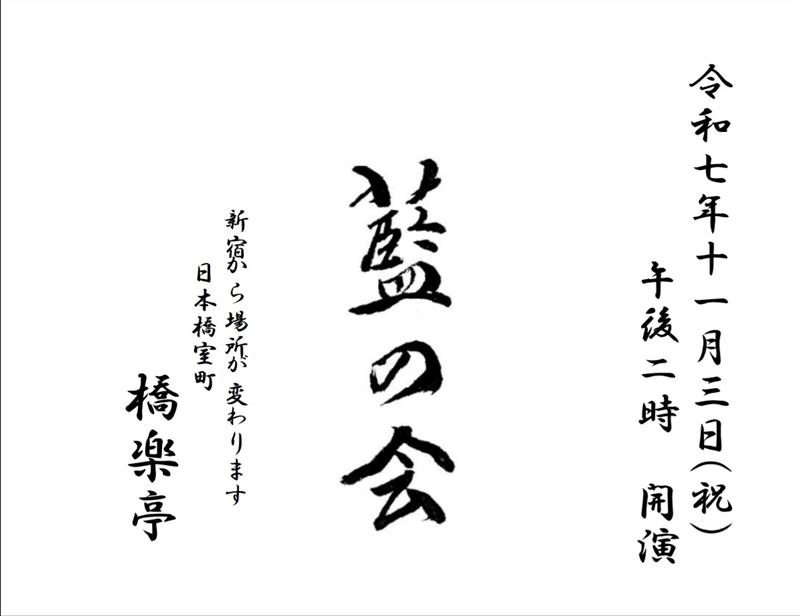 令和七年十一月三日(祝)
午後二時 開演
藍の会
新宿から場所が変わります
日本橋室町
橋楽亭